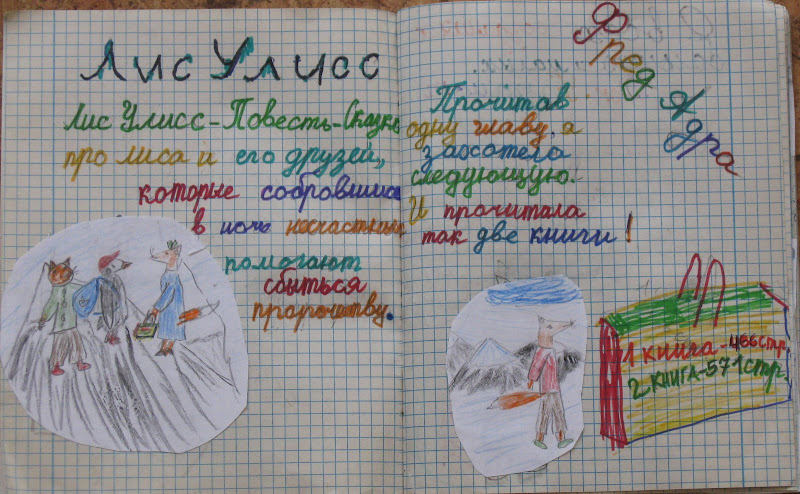 Лис Улисс
Лис Улисс-Повесть-Сказка
про лиса и его друзей,
которые собравшись
в ночь несчастных
помогают
сбыться
пророчеству.
Фред
Адра
Прочитав
одну главу, я
захотела
следующую.
И прочитала
так две книги!
1 книга-466стр.
2 книга-571стр.